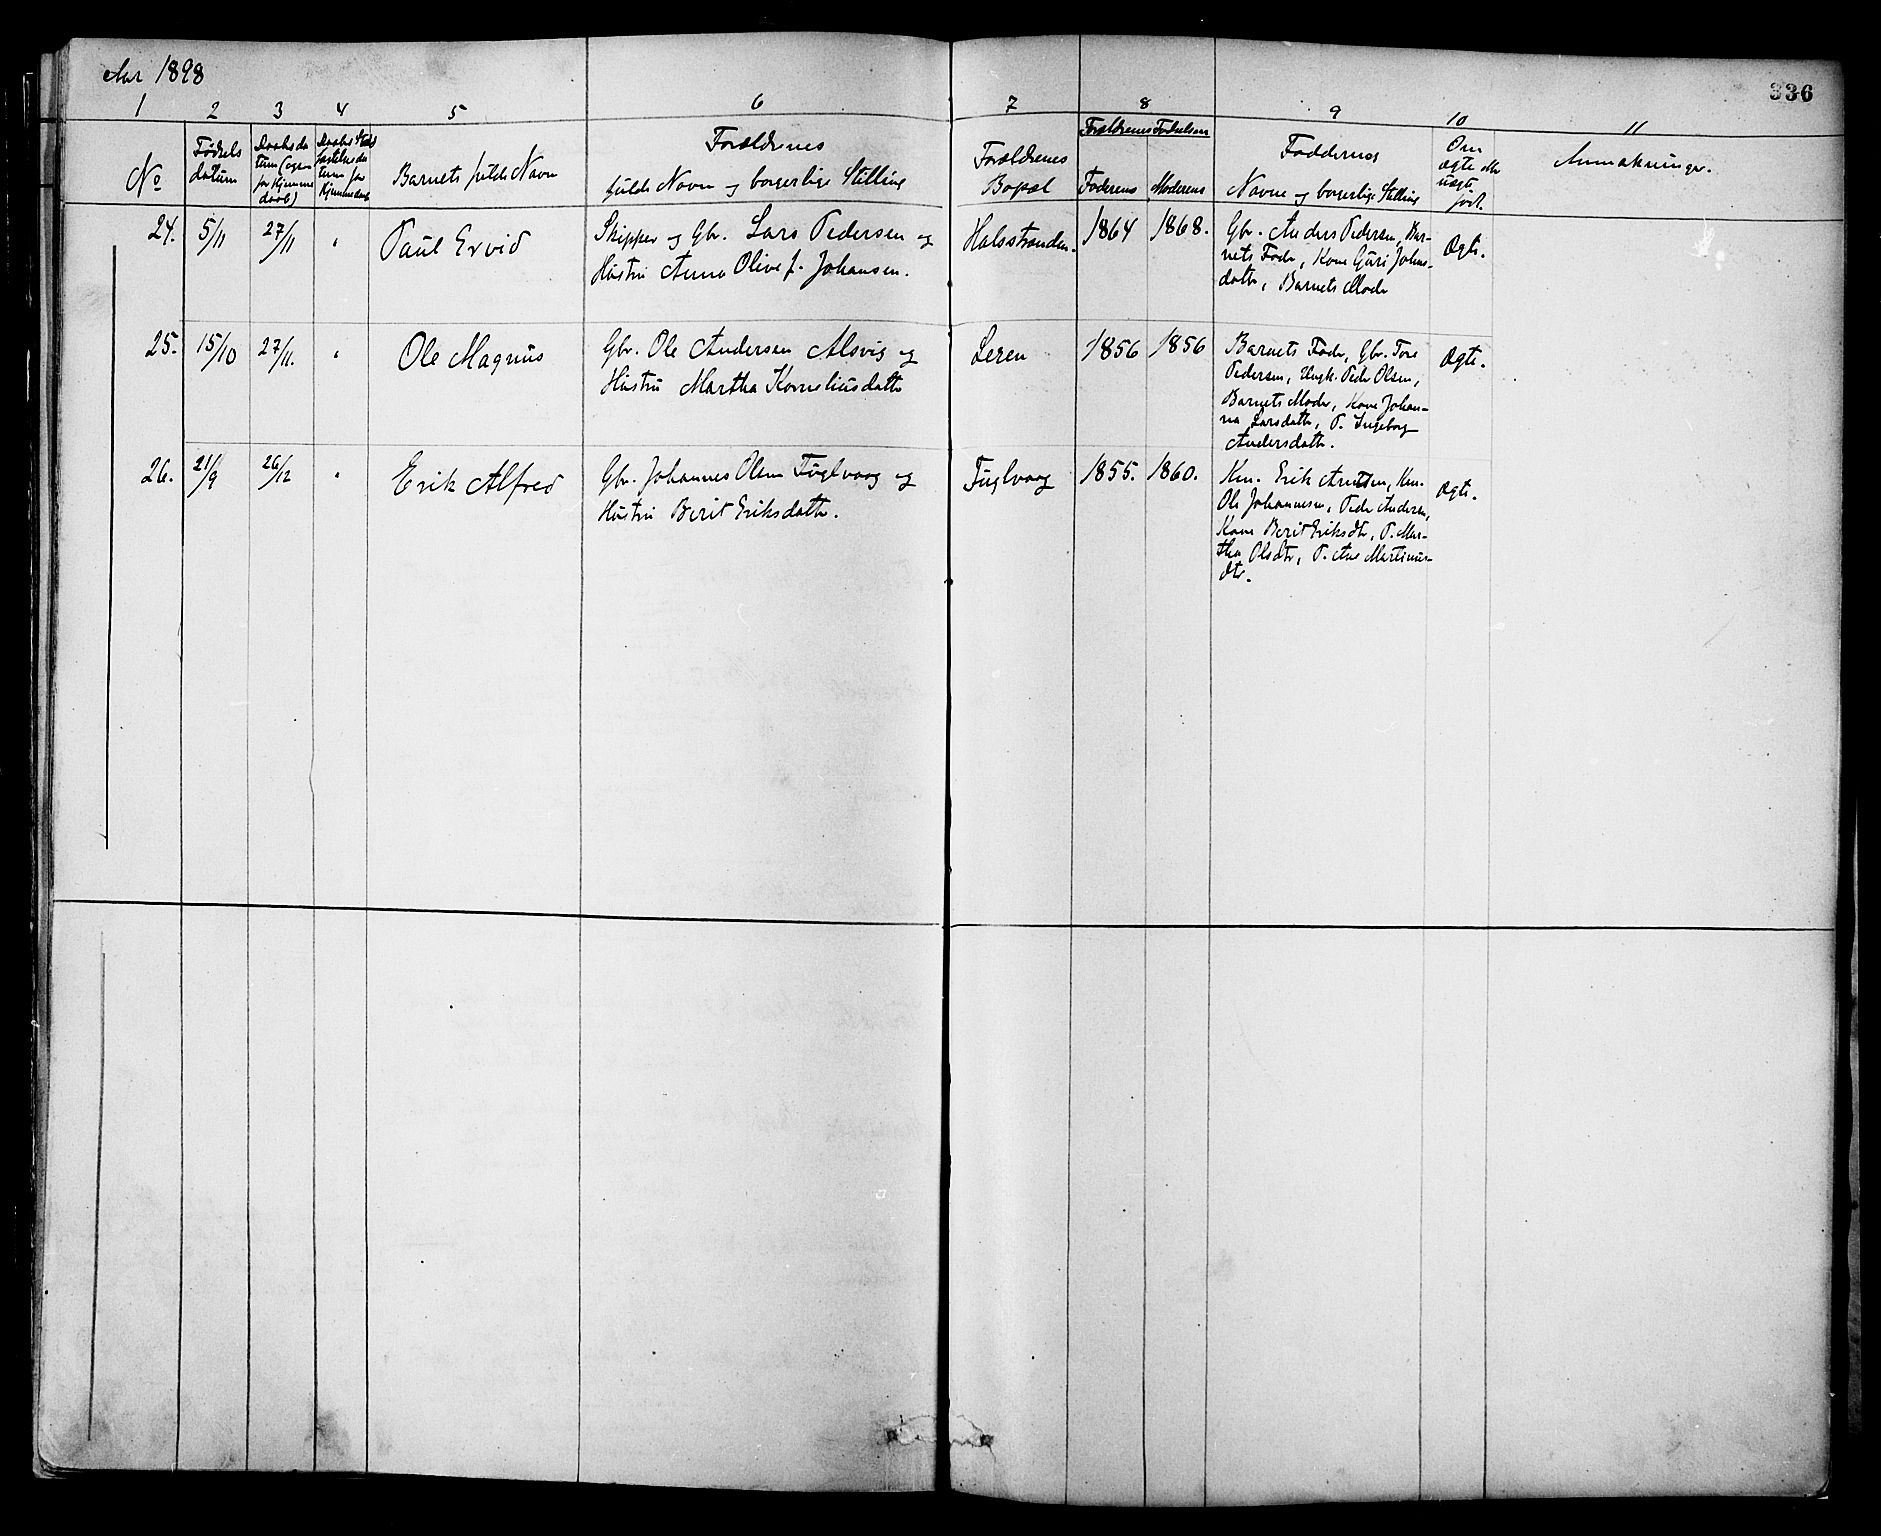 Aar 1898
336
1 2 3 4 5 6 7 8 9 10 11
No
Fødsels
datum
Daabsda
tum (ogsaa
for hjemme
daab)
Daabs Sted
fastelseda
tum for
hjemmedaab
Barnets fulde Navn
Forældrenes
fulde Navn og borgerlige Stilling
Forældrenes
Bopæl
Forældrenes Fødselsaar
Faderens Moderens
Faddernes
Navne og borgerlige Stilling
Om
ægte eller
uægte
født.
Anmærkninger.
24. 5/11 27/11 "
Paul Ervid
Skipper og Gbr. Lars Pedersen og
Hustru Anna Olive f. Johansen.
Halsstranden.
1864 1868.
Gbr. Anders Pedersen, Bar-
nets Fader, Kone Guri Johns-
datter, Barnets Moder
Ægte.
25. 15/10 27/11. "
Ole Magnus
Gbr. Ole Andersen Alsvig og
Hustru Martha Korneliusdatter
Leren
1856 1856
Barnets Fader, Gbr. Tore
Pedersen, Ungk. Peder Olsen,
Barnets Moder, Kone Johan-
na Larsdatter, P. Ingeborg
Andersdatter.
Ægte.
26. 21/9 26/12 "
Erik Alfred
Gbr. Johannes Olsen Fuglvaag og
Hustru Berit Eriksdatter.
Fuglvaag
1855. 1860.
Km. Erik Arntsen, Km.
Ole Johannesen, Peder Andersen,
Kone Berit Eriksdtr, P. Mar-
tha Olsdtr, P. Ane Martinus-
dtr.
Ægte.